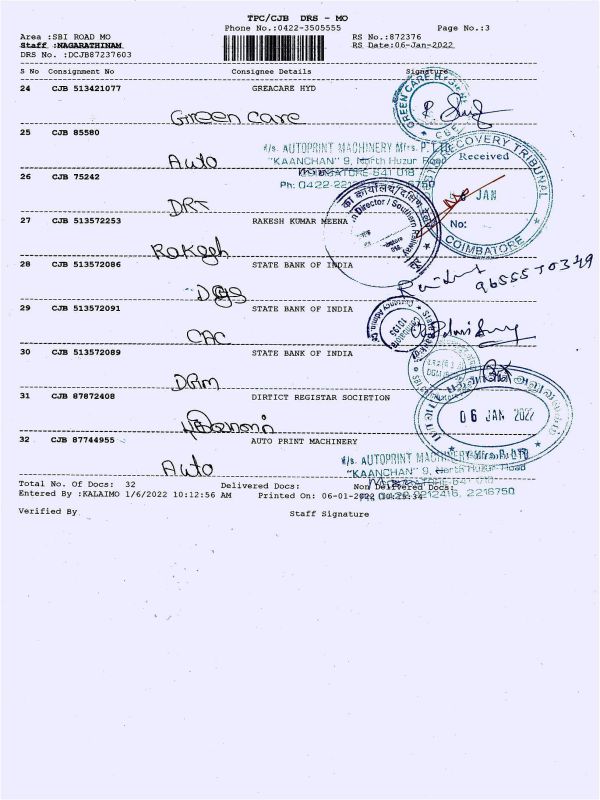 TPC/CJB DRS - MO
Phone No.:0422-3505555
Page No.:3
Area :SBI ROAD MO
RS No.:872376
Staff :NAGARATHINAM
RS Date:06-Jan-2022
DRS No. :DCJB87237603
S No Consignment No Consignee Details Signature
24 CJB 513421077 GREACARE HYD
Green Care
GREEN CARE
CBE
25 CJB 85580
Auto
M/s. AUTOPRINT MACHINERY Mfrs. P. LTD
"KAANCHAN" 9, North Huzur Road
COIMBATORE-641 018
RECOVERY TRIBUNAL
Received
JAN
No:
COIMBATORE
26 CJB 75242
DRT
27 CJB 513572253 RAKESH KUMAR MEENA
Rakesh
का कार्यालय/दक्षिण
Director / Southern Railway
28 CJB 513572086 STATE BANK OF INDIA
9655570349
29 CJB 513572091 STATE BANK OF INDIA
CAC
10195
30 CJB 513572089 STATE BANK OF INDIA
DGM
31 CJB 87872408 DIRTICT REGISTAR SOCIETION
06 JAN 2022
32 CJB 87744955 AUTO PRINT MACHINERY
Auto
M/s. AUTOPRINT MACHINERY Mfrs. P. LTD
"KAANCHAN" 9, North Huzur Road
Total No. Of Docs: 32 Delivered Docs: Non Delivered Docs:
Entered By :KALAIMO 1/6/2022 10:12:56 AM Printed On: 06-01-2022
2212416, 2216750
Verified By Staff Signature